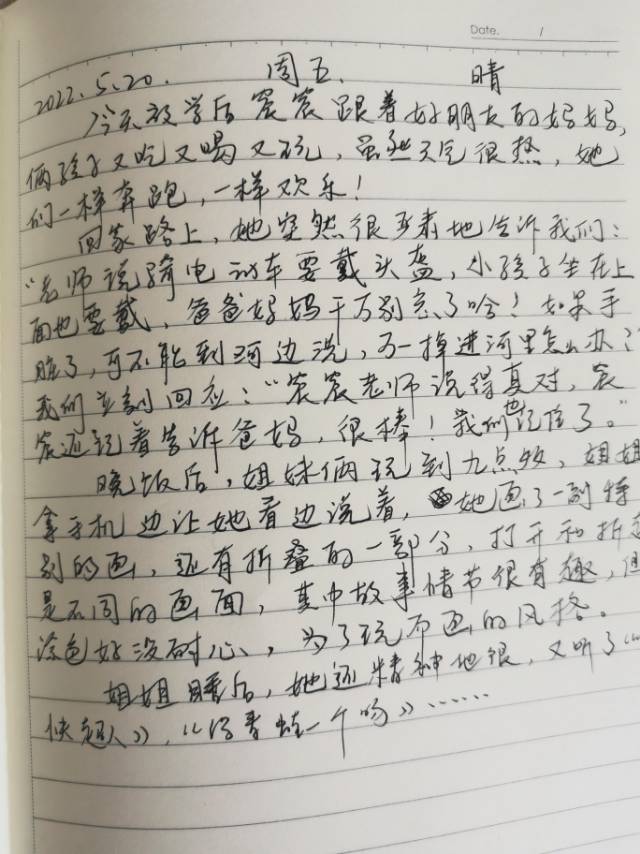 Date.      /
2022.5.20.    周五.    晴
今天放学后宸宸跟着好朋友的妈妈,
俩孩子又吃又喝又玩,虽然天气很热,她
们一样奔跑,一样欢乐!
回家路上,她突然很严肃地告诉我们:
“老师说骑电动车要戴头盔,小孩子坐在上
面也要戴,爸爸妈妈千万别忘了哈!如果手
脏了,可不能到河边洗,万一掉进河里怎么办?
我们立刻回应:“宸宸老师说得真对,宸
宸还记着告诉爸妈,很棒!我们也记住了。”
晚饭后,姐妹俩玩到九点收,姐姐
拿手机边让她看边说着,她画了一副特
别的画,还有折叠的一部分,打开和折
是不同的画面,其中故事情节很有趣,但
涂色好没耐心,为了玩而画的风格。
姐姐睡后,她还精神地很,又听了《
快超人》,《给青蛙一个吻》……